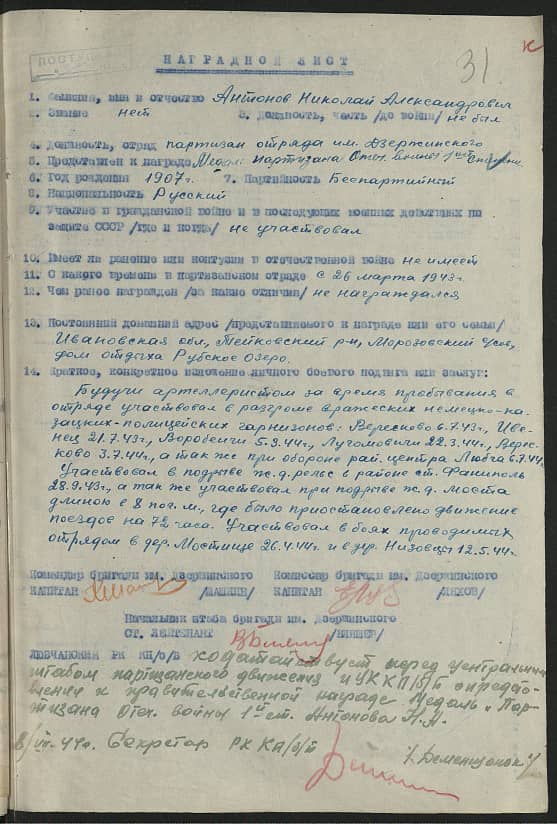 31
НАГРАДНОЙ ЛИСТ
1. Фамилия, имя и отчество Антонов Николай Александрович
2. Звание нет 3. Должность, часть /до войны/ не был
4. Должность, отряд партизан отряда им. Дзержинского
5. Представлен к награде Медаль партизана Отеч. войны 1ой степени
6. Год рождения 1907г. 7. Партийность Беспартийный
8. Национальность Русский
9. Участие в гражданской войне и в последующих военных действиях по
защите СССР /где и когда/ не участвовал
10. Имеет ли ранение или контузии в отечественной войне не имеет
11. С какого времени в партизанском отряде с 26 марта 1943г.
12. Чем ранее награжден /за какие отличия/ не награждался
13. Постоянный домашний адрес /представляемого к награде или его семьи/
Ивановская обл, Тейковский р-н, Морозовский
дом отдыха Рубское озеро.
14. Краткое, конкретное изложение личного боевого подвига или заслуг:
Будучи артеллеристом за время пробывания в
отряде участвовал в разгроме вражеских немецко-ка-
зацких-полицейских гарнизонов: Вересково 6.7.43г., Иве-
нец 21.7.43г., Воробеичи 5.9.44г., Лугомовичи 22.3.44г., Верес-
ково 3.7.44г, а так же при обороне рай. центра Любча 6.7.44г.
Участвовал в подрыве ж.д. рельс в районе ст. Фаниполь
28.9.43г., а так же участвовал при подрыве ж.д. моста
длиною в 8 пог.м., где было приостановлено движение
поездов на 72 часа. Участвовал в боях проводимых
отрядом в дер. Мостище 26.4.44г. и в дер. Низовцы 12.5.44г.
Командир бригады им. Дзержинского Комиссар бригады им. Дзержинского
КАПИТАН /ШАШКИН/ КАПИТАН /ЛЯХОВ/
Начальник штаба бригады им. Дзержинского
СТ. ЛЕЙТЕНАНТ
ЛЮБЧАНСКИЙ РК КП/б/Б ходатайствует перед центральным
штабом партизанского движения и ЦК КП/б/Б о предста-
влении к правительственной награде Медаль „Пар-
тизана Отеч. войны 1й ст. Антонова Н.А.
44г. Секретар РК КП/б/Б